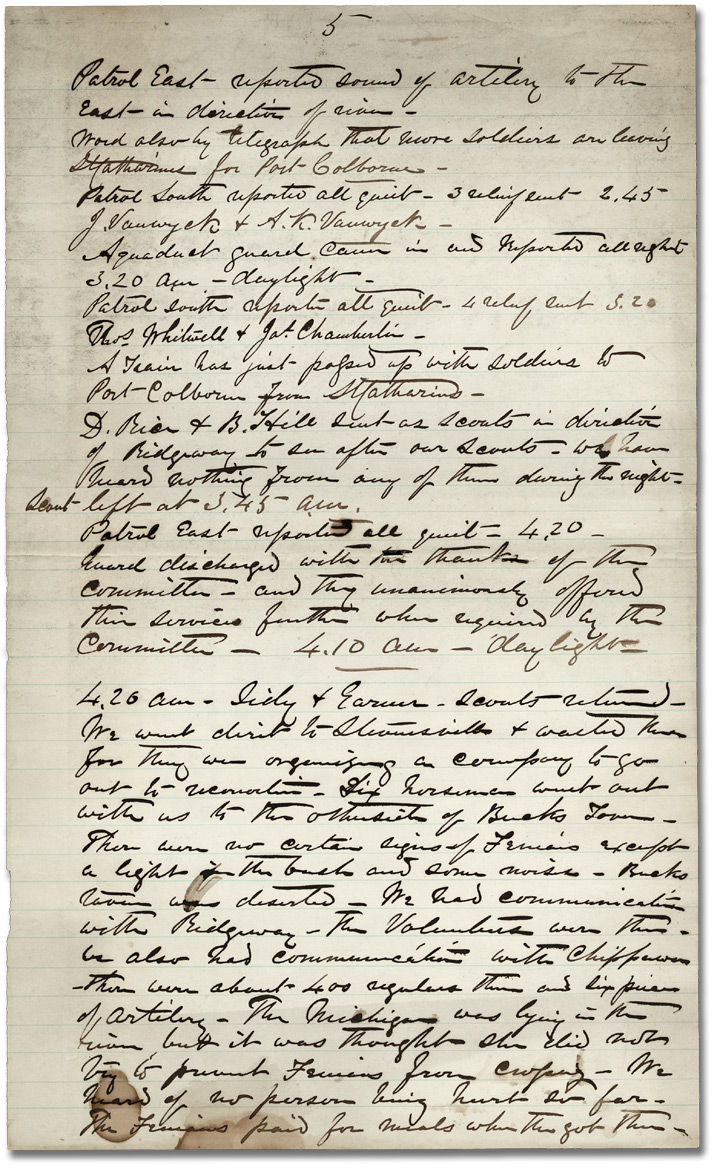 5
Patrol East - reported sound of artilery to the
East - in direction of river -
Word also by telegraph that more soldiers are leaving
St Catharines for Port Colborne -
Patrol South reported all quiet - 3 relief sent 2.45
J. Vanwyck & A. K. Vanwyck -
Aquaduct guard came in and reported all right
3.20 am - daylight -
Patrol south reports all quiet - 4 relief sent 3.20
Thos Whitwell & Jas Chamberlin -
A Train has just passed up with soldiers to
Port Colborne from St Catharines -
D. Rice & B. Hill sent as scouts in direction
of Ridgeway to see after our scouts - we have
heard nothing from any of them during the night -
Scout left at 3.45 am.
Patrol East reported all quiet - 4.20 -
Guard discharged with the thanks of the
Committee - and they unanimously offered
their services further when required by the
Committee - 4.10 am - daylight -
4.20 am - & - Scouts returned -
We went direct to Stevensville & waited there
for they were organizing a company to go
out to reconoitre - Six horsemen went out
with us to the otherside of Bucks Tavern -
There were no certain signs of Fenians except
a light in the bush and some noise - Bucks
tavern was deserted - We had communication
with Ridgeway - the Volunteers were there -
we also had communication with Chippawa
- there were about 400 regulars there and six pieces
of artilery - The Michigan was lying in the
river but it was thought she did not
try to prevent Fenians from crossing - We
heard of no person being hurt so far -
The Fenians paid for meals when they got them -